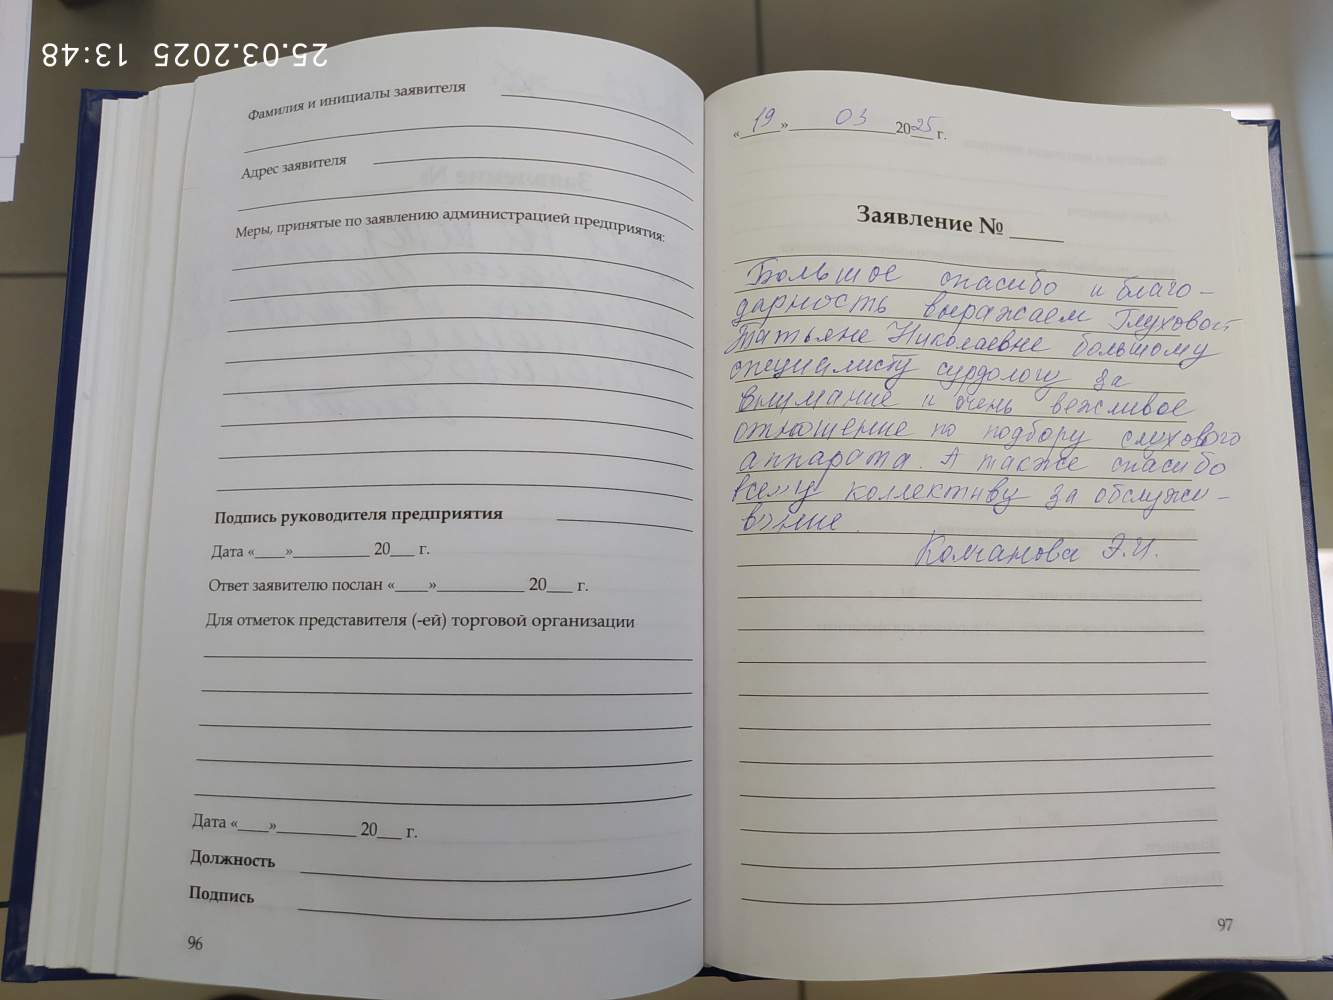 25.03.2025 13:48
Фамилия и инициалы заявителя
Адрес заявителя
Меры, принятые по заявлению администрацией предприятия:
Подпись руководителя предприятия
Дата «____»__________ 20___ г.
Ответ заявителю послан «____»__________ 20___ г.
Для отметок представителя (-ей) торговой организации
Дата «____»__________ 20___ г.
Должность
Подпись
96
«19» 03 2025 г.
Заявление № _____
Большое спасибо и благо-
дарность выражаем Глуховой
Татьяне Николаевне большому
специалисту сурдологу за
внимание и очень вежливое
отношение по подбору слухового
аппарата. А также спасибо
всему коллективу за обслужи-
вание.
Колчанова Э.И.
97